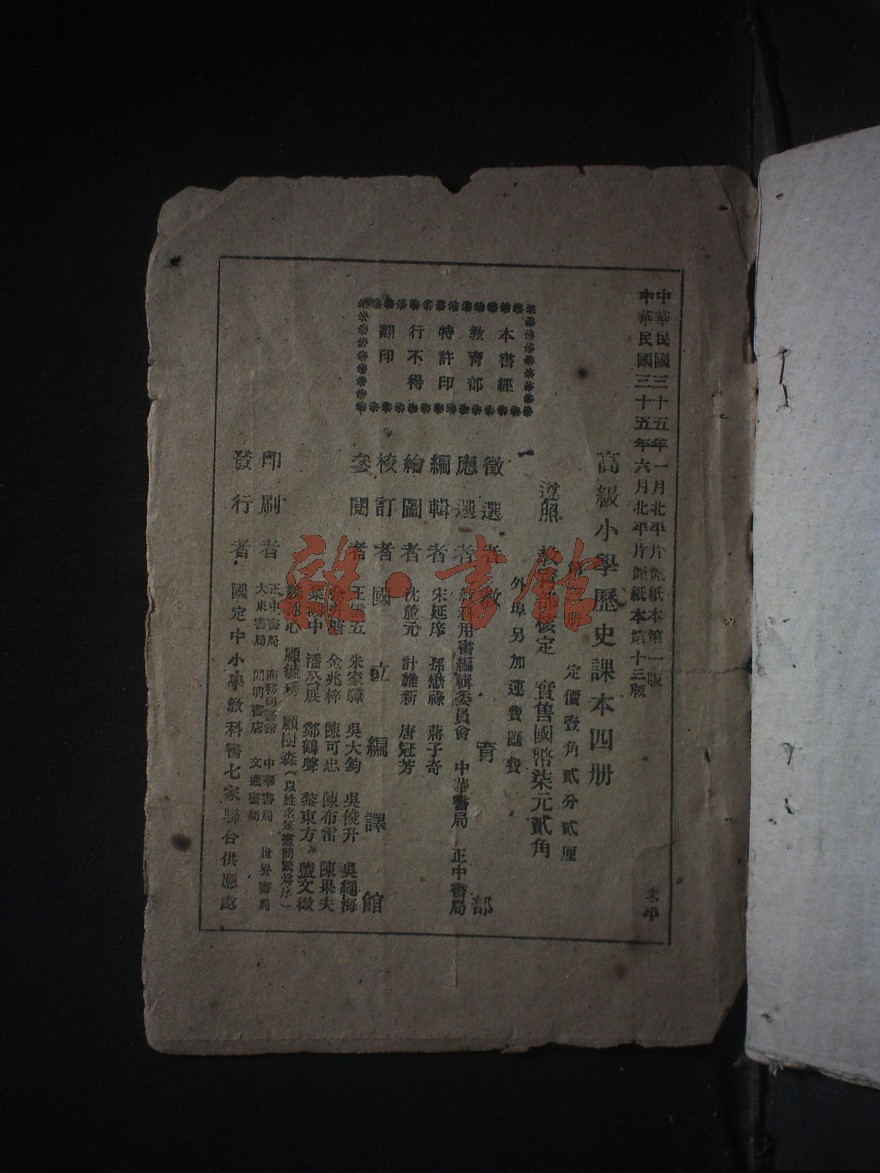 中華民國三十五年一月北平片艷紙本第一版
中華民國三十五年六月北平片艷紙本第十三版
高級小學歷史課本四册
定價壹角貳分貳厘
遵照 教育部核定 實售國幣柒元貳角
外埠另加運費匯費
本書經
教育部
特許印
行不得
翻印
徵選者 教育部
應選者 教科用書編輯委員會 中華書局 正中書局
編輯者 宋延庠 孫懋祿 蔣子奇
繪圖者 沈麓元 計維新 唐冠芳
校訂者 國立編譯館
參閱者 王雲五 朱家驊 吳大鈞 吳俊升 吳繩海
金兆梓 陳可忠 陳布雷 陳果夫
潘公展 鄭鶴聲 黎東方 藍文徵
顧毓琇 顧樹森（以姓名筆畫簡繁爲序）
印刷者 正中書局 商務印書館 中華書局 世界書局
大東書局 開明書店 文通書局
發行者 國定中小學教科書七家聯合供應處
文平
雜·書館